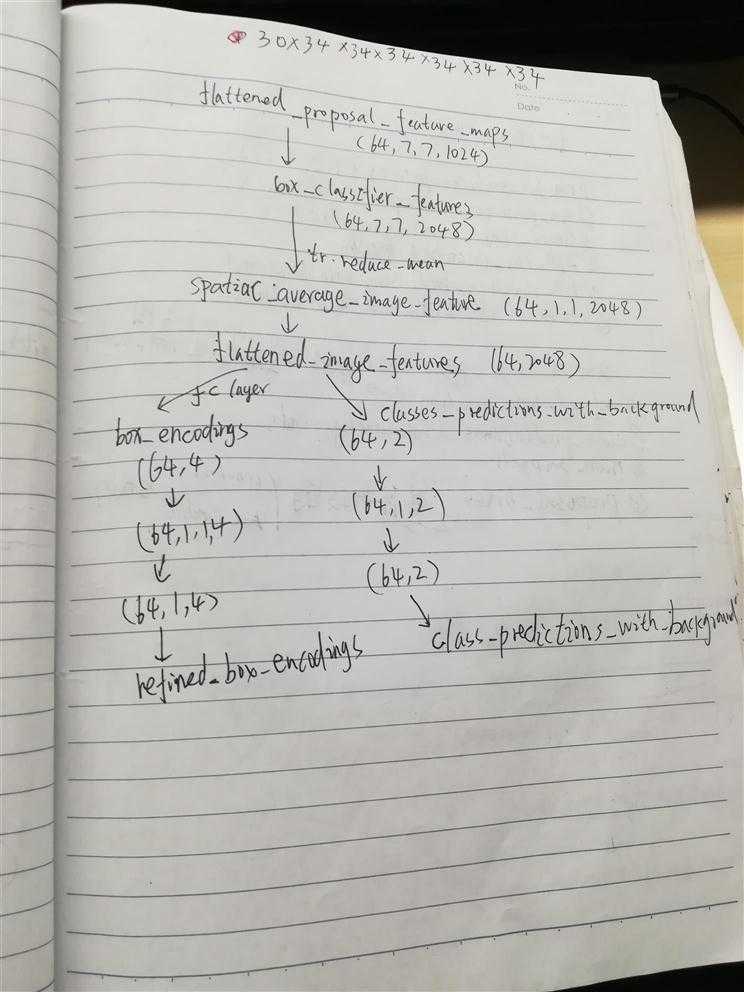 30×34×34×34×34×34×34
No.
Date
flattened_proposal_feature_maps
(64,7,7,1024)
box_classifier_features
(64,7,7,2048)
tf.reduce_mean
spatial_average_image_feature (64,1,1,2048)
flattened_image_features (64,2048)
fc layer
classes_predictions_with_background
box_encodings
(64,2)
(64,4)
(64,1,2)
(64,1,1,4)
(64,2)
(64,1,4)
class_predictions_with_background
refined_box_encodings